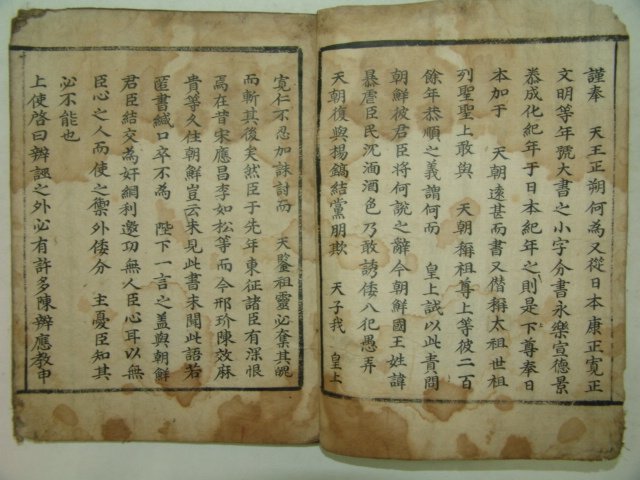 謹奉　天王正朔何為又從日本康正寬正
文明等年號大書之小字分書永樂宣德景
泰成化紀年于日本紀年之則是下尊奉日
本加于　天朝遠甚而書又僭稱太祖世祖
列聖聖上敢與　天朝稱祖尊上等彼二百
餘年恭順之義謂何而　皇上誠以此責問
朝鮮被君臣將何說之辭今朝鮮國王姓諱
暴虐臣民沉湎酒色乃敢誘倭入犯愚弄
天朝復與楊鎬結黨朋欺　天子我　皇上
寬仁不忍加誅討而　天鑒祖靈必奪其魄
而斬其後矣然臣于先年東征諸臣有深恨
焉在昔宋應昌李如松等而今邢玠陳效麻
貴等久住朝鮮豈云未見此書未聞此語若
匿書緘口卒不為　陛下一言之盖與朝鮮
君臣結交為奸網利邀功無人臣心耳以無
臣心之人而使之禦外倭分　主憂臣知其
必不能也
上使啓曰辨誣之外必有許多陳辨應教申